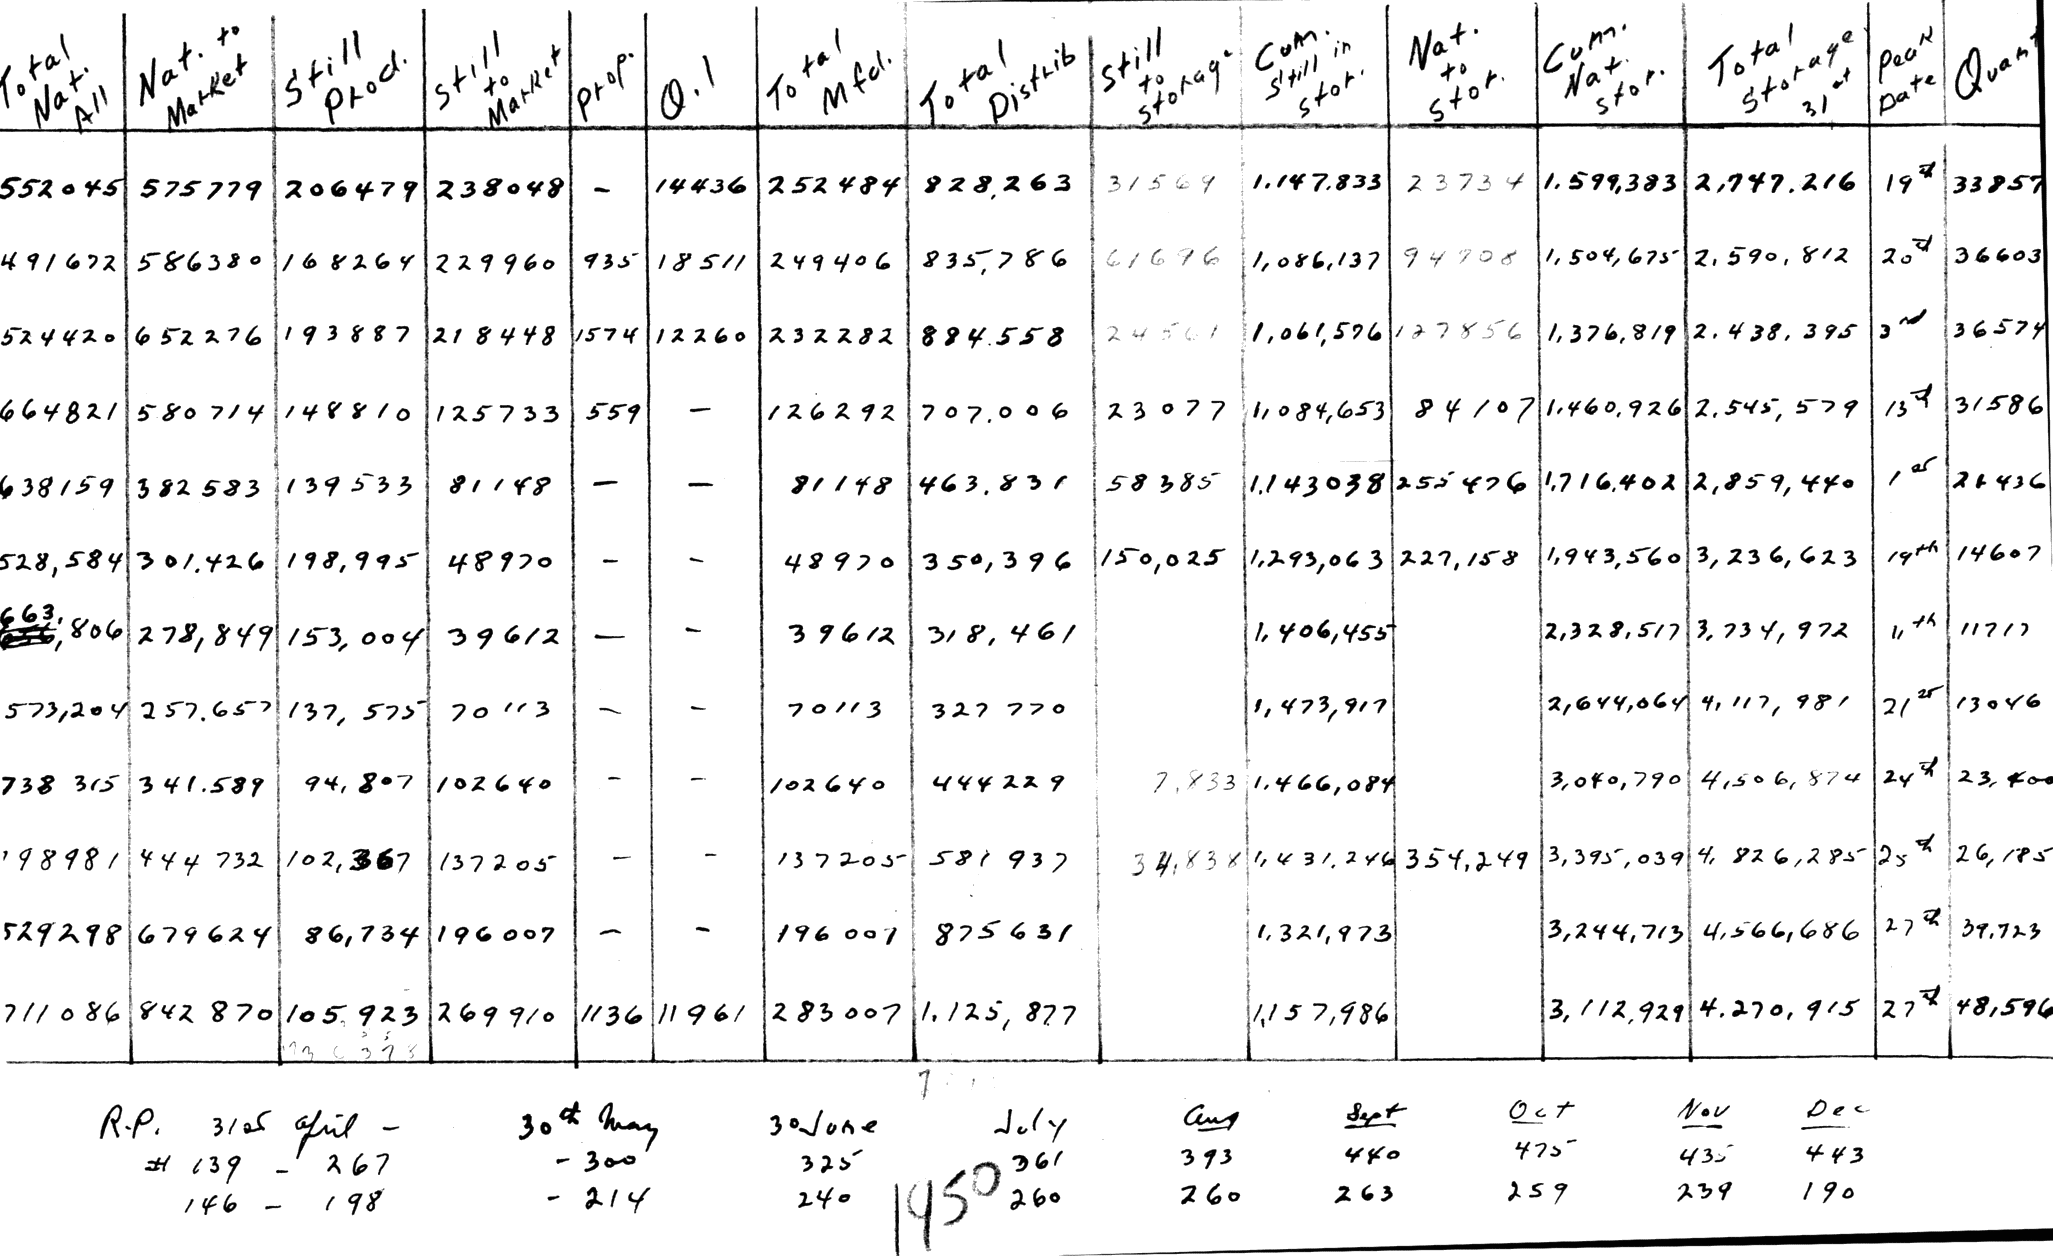 Total Nat. All | Nat. to Market | Still Prod. | Still to Market | Prop. | O.1 | Total Mfd. | Total Distrib | Still to Storage | Cum. Still in Stor. | Nat. to Stor. | Cum. Nat. Stor. | Total Storage 31st | Peak Date | Quant
552045 | 575779 | 206479 | 238048 | – | 14436 | 252484 | 828,263 | 31569 | 1.147.833 | 23734 | 1.599,383 | 2,747.216 | 19th | 33857
491672 | 586380 | 168264 | 229960 | 935 | 18511 | 249406 | 835,786 | 61696 | 1,086,137 | 94708 | 1,504,675 | 2.590,812 | 20th | 36603
524420 | 652276 | 193887 | 218448 | 1574 | 12260 | 232282 | 884.558 | 24561 | 1,061,576 | 127856 | 1,376,819 | 2.438,395 | 3nd | 36574
664821 | 580714 | 148810 | 125733 | 559 | – | 126292 | 707.006 | 23077 | 1,084,653 | 84107 | 1.460,926 | 2.545,579 | 13th | 31586
638159 | 382583 | 139533 | 81148 | – | – | 81148 | 463.831 | 58385 | 1,143038 | 255476 | 1,716,402 | 2,859,440 | 1st | 21436
528,584 | 301.426 | 198,995 | 48970 | – | – | 48970 | 350,396 | 150,025 | 1,293,063 | 227,158 | 1,943,560 | 3,236,623 | 19th | 14607
663,806 | 278,849 | 153,004 | 39612 | – | – | 39612 | 318,461 | 1,406,455 | 2,328,517 | 3,734,972 | 11th | 11717
573,204 | 257.657 | 137,575 | 70113 | – | – | 70113 | 327770 | 1,473,917 | 2,644,064 | 4,117,981 | 21st | 13046
738315 | 341.589 | 94,807 | 102640 | – | – | 102640 | 444229 | 7,833 | 1.466,084 | 3,040,790 | 4,506,874 | 24th | 23,400
198981 | 444732 | 102,367 | 137205 | – | – | 137205 | 581937 | 34,838 | 1,431.246 | 354,249 | 3,395,039 | 4,826,285 | 25th | 26,185
529298 | 679624 | 86,734 | 196007 | – | – | 196007 | 875631 | 1.321,973 | 3,244,713 | 4,566,686 | 27th | 39,723
711086 | 842870 | 105,923 | 269910 | 1136 | 11961 | 283007 | 1.125,877 | 1,157,986 | 3,112,929 | 4.270,915 | 27th | 48,596
R.P. 31st April – 30th May 30 June July Aug Sept Oct Nov Dec
# 139 – 267 – 300 325 361 393 440 475 435 443
146 – 198 – 214 240 260 260 263 259 239 190
1950